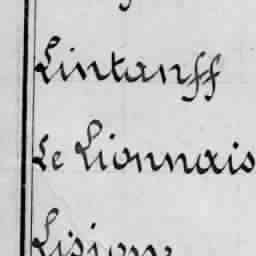 Lintanff
Le Lionnais